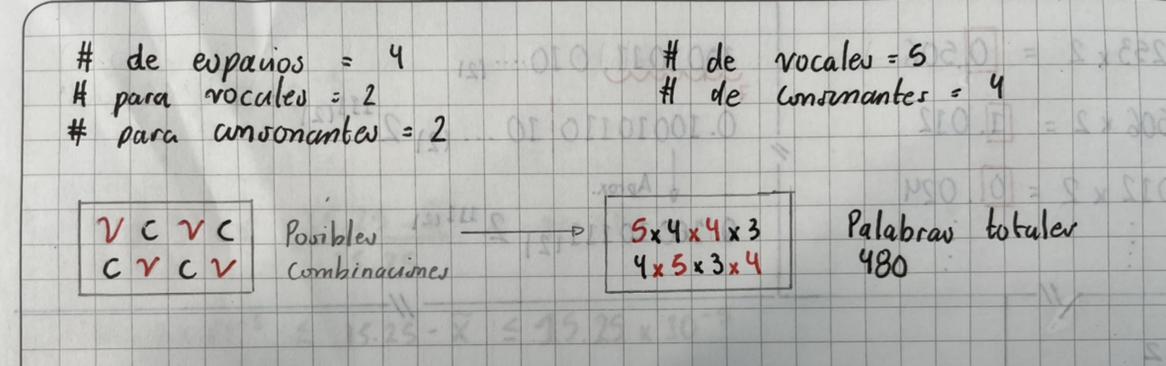 # de espacios = 4
# para vocales = 2
# para consonantes = 2
# de vocales = 5
# de consonantes = 4
V C V C
C V C V
Posibles
combinaciones
5x4x4x3
4x5x3x4
Palabras totales
480